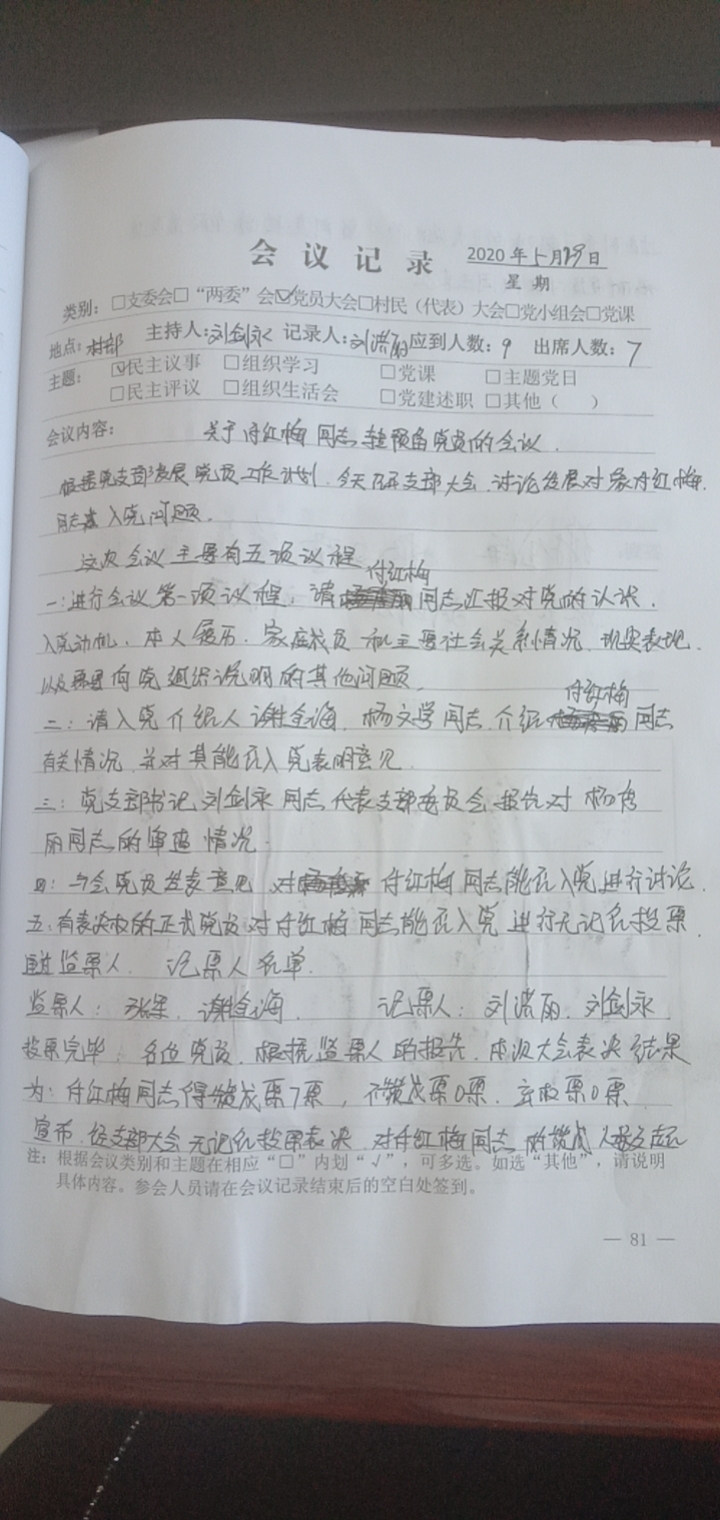 会议记录 2020年5月29日
星期
类别：□支委会□“两委”会☑党员大会□村民（代表）大会□党小组会□党课
地点：村部 主持人：刘剑永 记录人：刘洪丽 应到人数：9 出席人数：7
主题： ☑民主议事 □组织学习 □党课 □主题党日
□民主评议 □组织生活会 □党建述职 □其他（ ）
会议内容： 关于付红梅同志转预备党员的会议.
根据党支部发展党员工作计划.今天召开支部大会.讨论发展对象付红梅.
同志入党问题.
这次会议主要有五项议程
付红梅
一：进行会议第一项议程，请同志汇报对党的认识.
入党动机、本人履历、家庭成员和主要社会关系情况、现实表现.
以及需要向党组织说明的其他问题.
付红梅
二：请入党介绍人谢金海、杨文学同志介绍同志
有关情况，并对其能否入党表明意见
三：党支部书记刘剑永同志代表支部委员会报告对杨
丽同志的审查情况.
四：与会党员发表意见 对付红梅同志能否入党进行讨论.
五：有表决权的正式党员对付红梅同志能否入党进行无记名投票.
监票人. 记票人名单.
监票人： 谢金海. 记票人：刘洪丽.刘剑永.
投票完毕：各位党员.根据监票人的报告.本次大会表决结果
为：付红梅同志得赞成票7票，不赞成票0票.弃权票0票
宣布.经支部大会无记名投票表决.对付红梅同志的赞成人
注：根据会议类别和主题在相应“□”内划“√”，可多选。如选“其他”，请说明
具体内容。参会人员请在会议记录结束后的空白处签到。
— 81 —